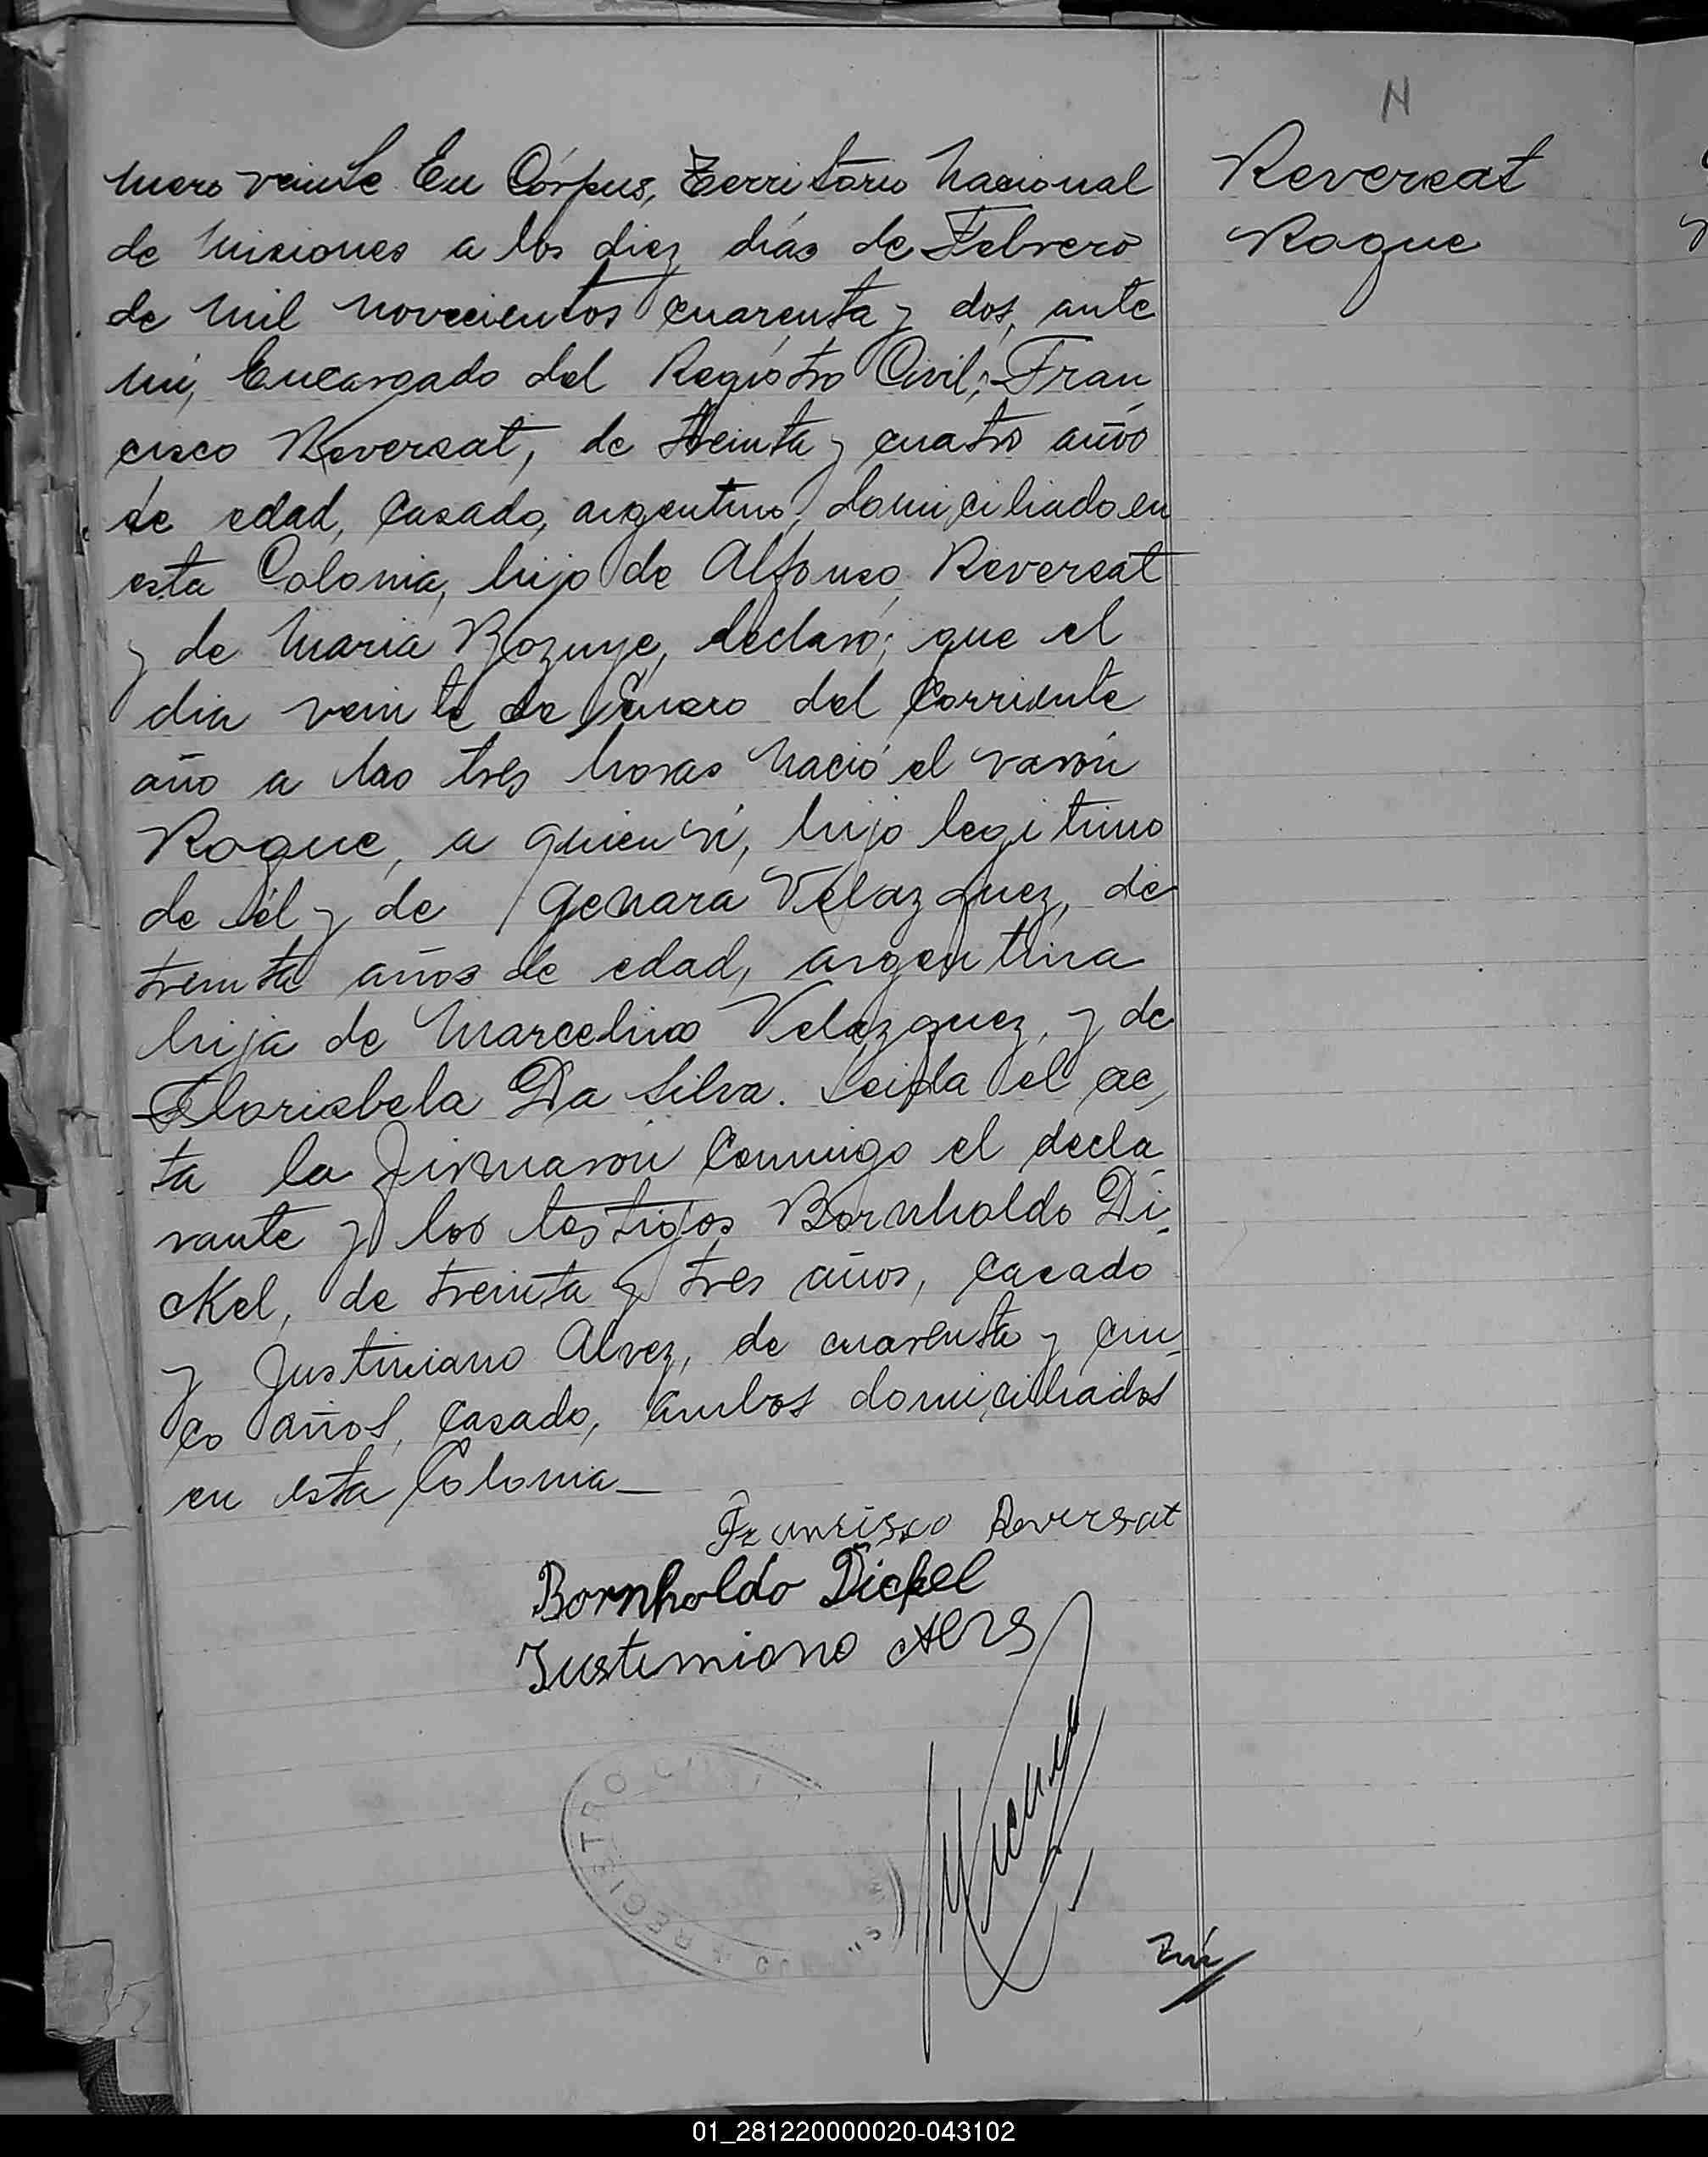 N
Reversat
Roque
mero veinte. En Córpus, Territorio Nacional
de Misiones a los diez días de Febrero
de mil novecientos cuarenta y dos, ante
mí, Encargado del Registro Civil; Fran
cisco Reversat, de treinta y cuatro años
de edad, casado, argentino, domiciliado en
esta Colonia, hijo de Alfonso Reversat
y de Maria Bozuye, declaró; que el
dia veinte de Enero del corriente
año a las tres horas nació el varón
Roque, a quien ví, hijo legitimo
de él y de Genara Velazquez, de
treinta años de edad, argentina
hija de Marcelino Velazquez, y de
Florisbela Da Silva. Leida el ac,
ta la firmaron conmigo el decla
rante y los testigos Bornholdo Di-
ckel, de treinta y tres años, casado
y Justiniano Alvez, de cuarenta y cin
co años, casado, ambos domiciliados
en esta Colonia—
Francisco Reversat
Bornholdo Dickel
Justemiano
REGISTRO CIVIL
01_281220000020-043102